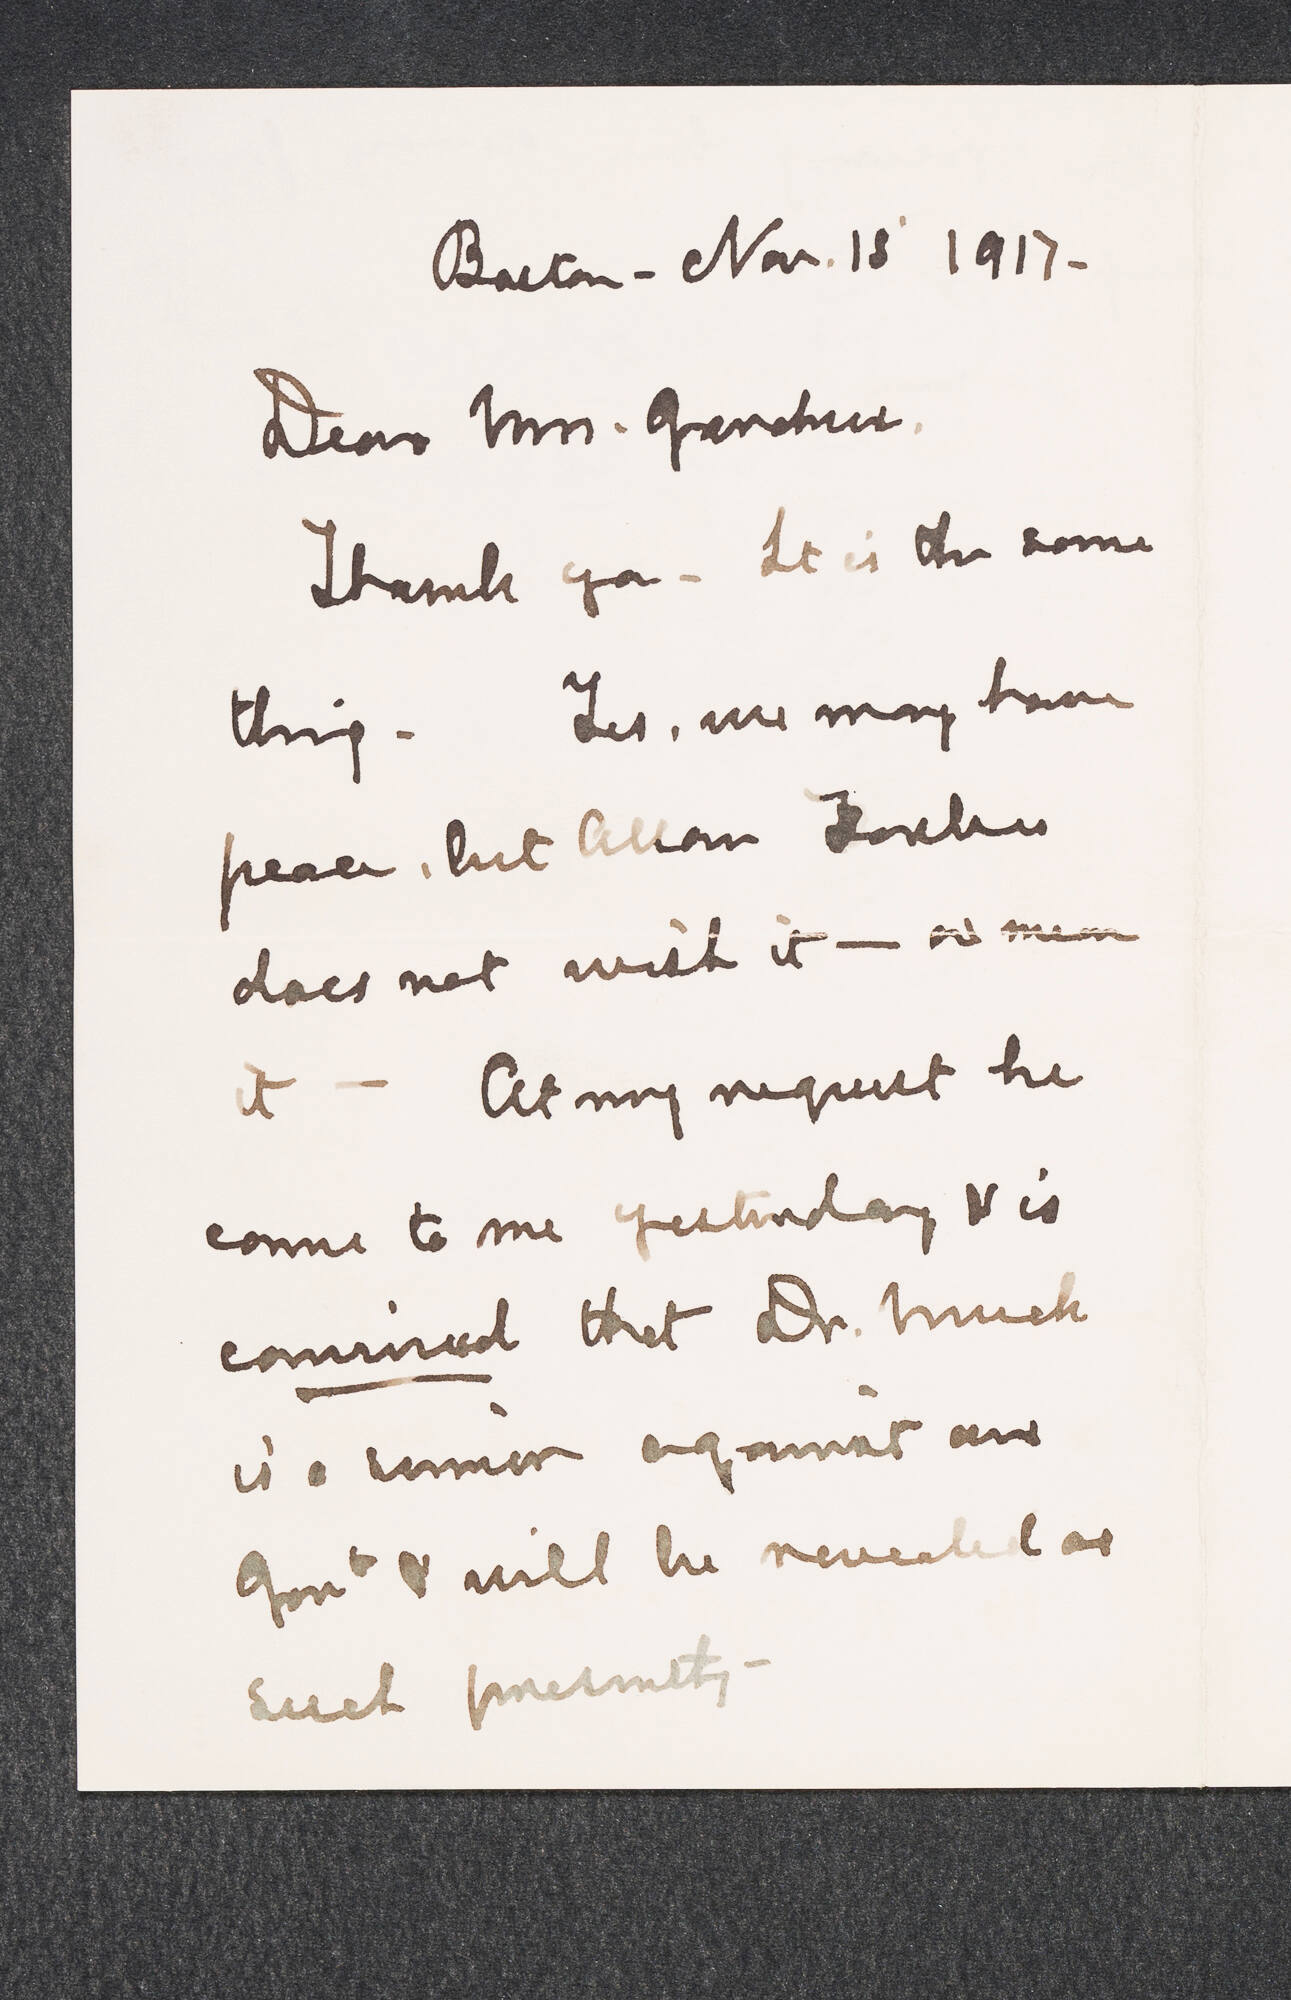 Boston - Nov. 15 1917-
Dear Mrs. Gardner.
Thank you - It is the same
thing - Yes, we may have
peace, but Allan Forbes
does not wish it — or mean
it — At my request he
came to me yesterday & is
convinced that Dr. Muck
is a sinner against our
Govt & will be revealed as
such presently -